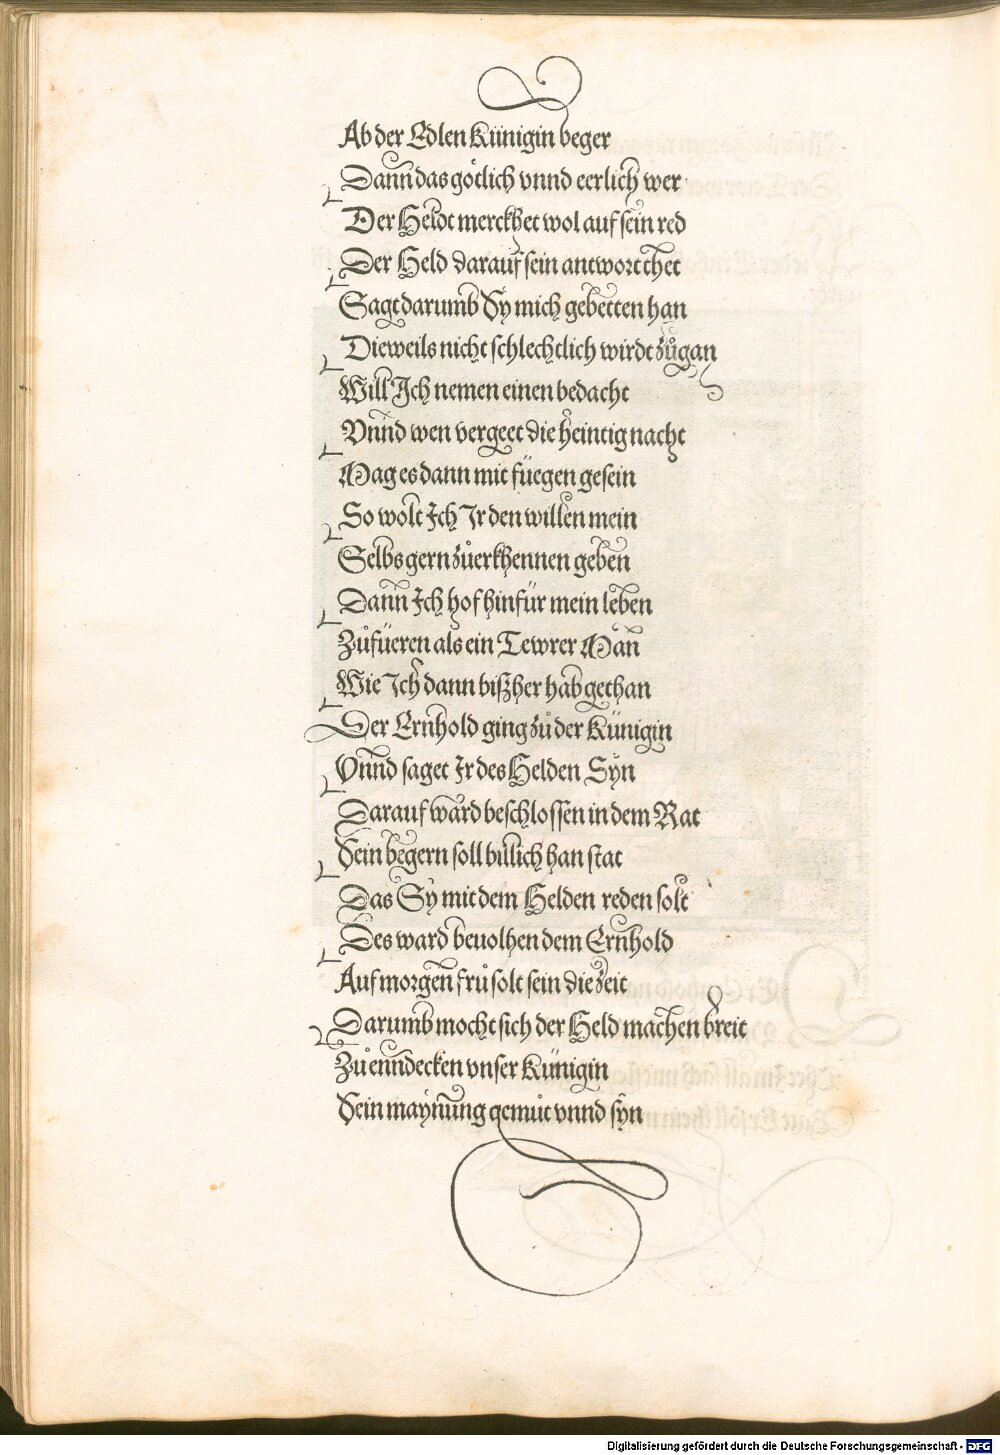 Ab der Edlen Künigin beger
Dann das götlich vnnd eerlich wer
Der Heldt merckhet wol auf sein red
Der Held darauf sein antwort thet
Sagt darumb Sy mich gebetten han
Dieweils nicht schlechtlich wirdt zůgan
Will Ich nemen einen bedacht
Vnnd wen vergeet die heintig nacht
Mag es dann mit füegen gesein
So wolt Ich Ir den willen mein
Selbs gern zůerkhennen geben
Dann Ich hof hinfür mein leben
Zůfüeren als ein Tewrer Man
Wie Ich dann bißher hab gethan
Der Ernhold ging zů der Künigin
Vnnd saget Ir des Helden Syn
Darauf ward beschlossen in dem Rat
Sein begern soll bilich han stat
Das Sy mit dem Helden reden solt
Des ward beuolhen dem Ernhold
Auf morgen frů solt sein die zeit
Darumb mocht sich der Held machen breit
Zů enndecken vnser Künigin
Sein maynung gemůt vnnd syn
Digitalisierung gefördert durch die Deutsche Forschungsgemeinschaft - DFG